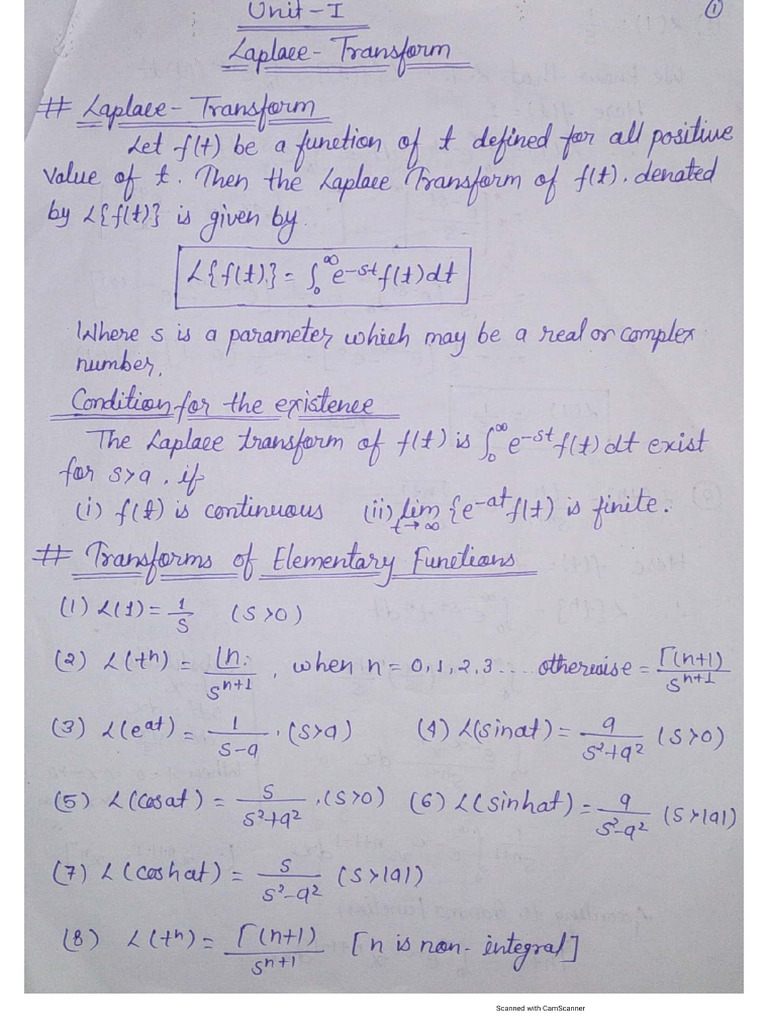 Unit-I
①
Laplace-Transform
# Laplace-Transform
Let f(t) be a function of t defined for all positive
value of t. Then the Laplace Transform of f(t). denated
by L{f(t)} is given by
L{f(t)} = ∫₀^∞ e^-st f(t) dt
Where s is a parameter which may be a real or complex
number.
Condition for the existence
The Laplace transform of f(t) is ∫₀^∞ e^-st f(t) dt exist
for s>a, if
(i) f(t) is continuous (ii) lim t→∞ {e^-at f(t) is finite.
# Transforms of Elementary Functions
(1) L(1) = 1/s (s>0)
(2) L(t^n) = ⌊n / s^n+1, when n = 0, 1, 2, 3 .... otherwise = Γ(n+1)/s^n+1
(3) L(e^at) = 1/s-a . (s>a) (4) L(sinat) = a/s²+a² (s>0)
(5) L(cosat) = s/s²+a² . (s>0) (6) L(sinhat) = a/s²-a² (s>|a|)
(7) L(coshat) = s/s²-a² (s>|a|)
(8) L(t^n) = Γ(n+1)/s^n+1 [n is non-integral]
Scanned with CamScanner